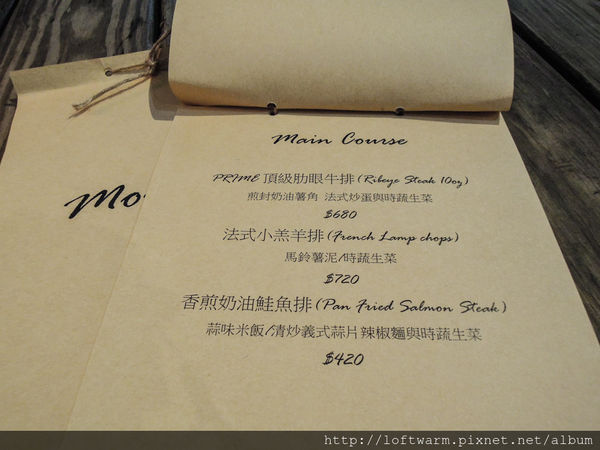 Main Course
PRIME 頂級肋眼牛排 (Ribeye Steak 10oz)
煎封奶油薯角 法式炒蛋與時蔬生菜
$680
法式小羔羊排 (French Lamp chops)
馬鈴薯泥/時蔬生菜
$720
香煎奶油鮭魚排 (Pan Fried Salmon Steak)
蒜味米飯/清炒義式蒜片辣椒麵與時蔬生菜
$420
Mo
http://loftwarm.pixnet.net/album